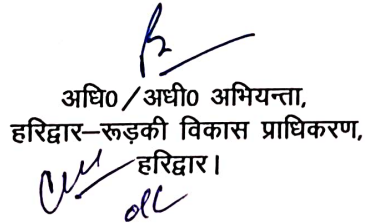 अधि0/अधी0 अभियन्ता,
हरिद्वार–रूड़की विकास प्राधिकरण,
हरिद्वार।